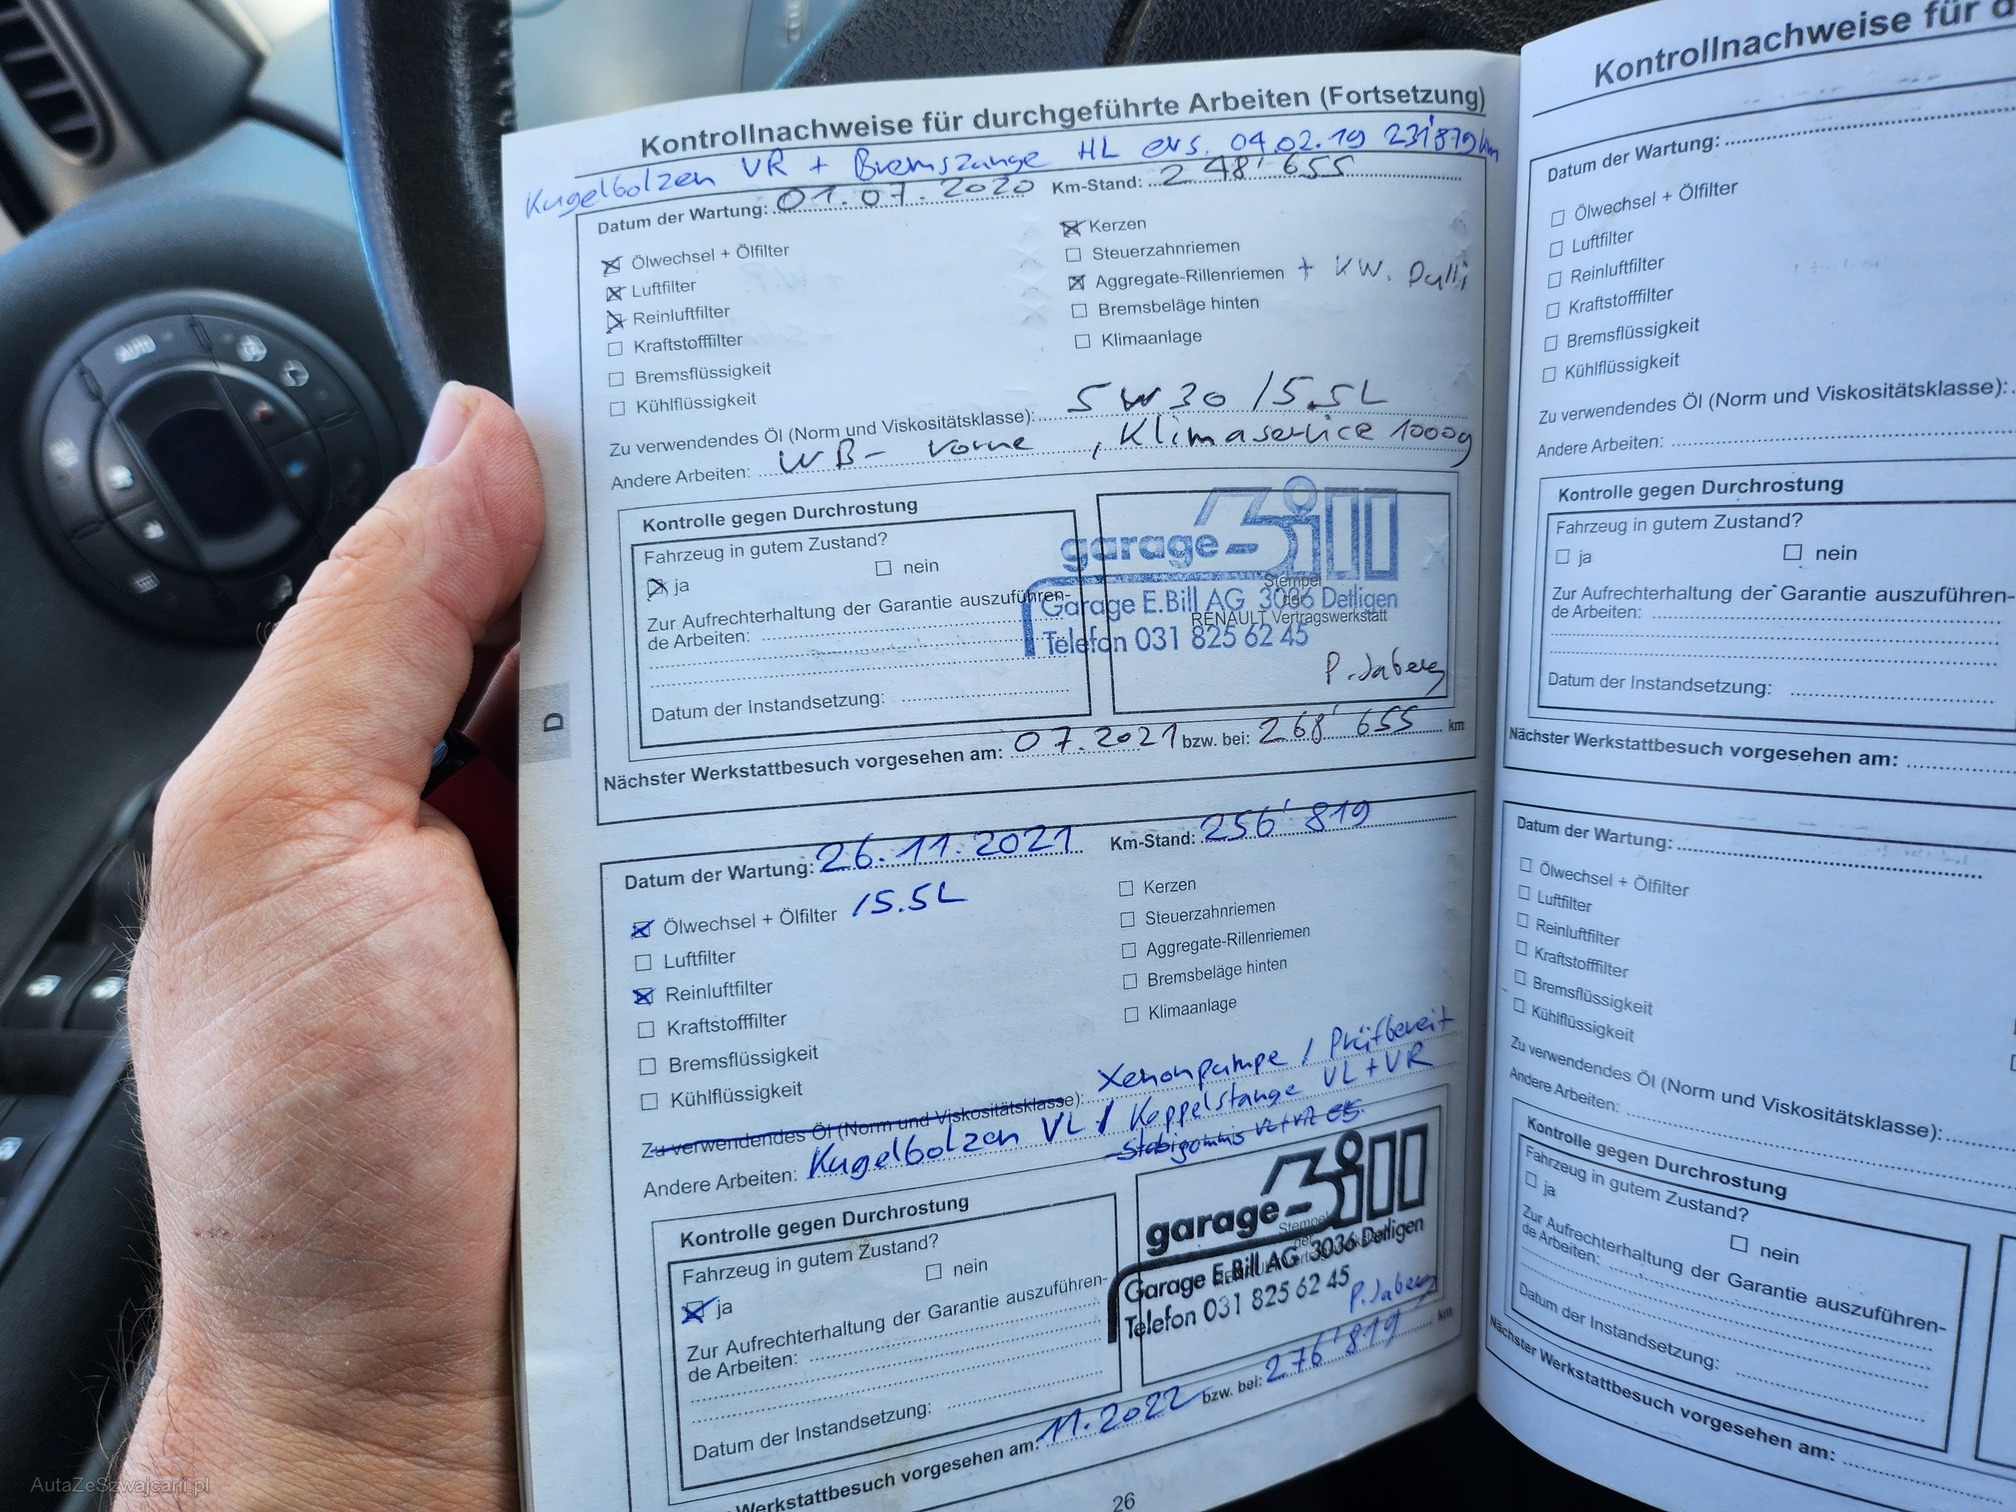 Kontrollnachweise für durchgeführte Arbeiten (Fortsetzung)
Kugelbolzen VR + Bremszange HL ers. 04.02.19 231'879 km
Datum der Wartung: 01.07.2020 Km-Stand: 248'655
Ölwechsel + Ölfilter
Luftfilter
Reinluftfilter
Kraftstofffilter
Bremsflüssigkeit
Kühlflüssigkeit
Kerzen
Steuerzahnriemen
Aggregate-Rillenriemen + KW. Pulli
Bremsbeläge hinten
Klimaanlage
Zu verwendendes Öl (Norm und Viskositätsklasse): 5W30 /5.5L
Andere Arbeiten: WB- vorne, Klimaservice 1000g
Kontrolle gegen Durchrostung
Fahrzeug in gutem Zustand?
ja nein
Zur Aufrechterhaltung der Garantie auszuführen-
de Arbeiten:
Datum der Instandsetzung:
garage Bill
Stempel
der
Garage E.Bill AG 3036 Detligen
RENAULT Vertragswerkstatt
Telefon 031 825 62 45
P. Jaberg
Nächster Werkstattbesuch vorgesehen am: 07.2021 bzw. bei: 268'655 km
Datum der Wartung: 26.11.2021 Km-Stand: 256'819
Ölwechsel + Ölfilter /5.5L
Luftfilter
Reinluftfilter
Kraftstofffilter
Bremsflüssigkeit
Kühlflüssigkeit
Kerzen
Steuerzahnriemen
Aggregate-Rillenriemen
Bremsbeläge hinten
Klimaanlage
Zu verwendendes Öl (Norm und Viskositätsklasse): Xenonpumpe / Prüfbereit
Andere Arbeiten: Kugelbolzen VL / Koppelstange VL+VR
Stabigummis VL+VR
Kontrolle gegen Durchrostung
Fahrzeug in gutem Zustand?
ja nein
Zur Aufrechterhaltung der Garantie auszuführen-
de Arbeiten:
Datum der Instandsetzung:
garage Bill
Stempel
der
Garage E.Bill AG 3036 Detligen
Telefon 031 825 62 45
P. Jaberg
Werkstattbesuch vorgesehen am: 11.2022 bzw. bei: 276'819 km
26
D
Kontrollnachweise für d
Datum der Wartung:
Ölwechsel + Ölfilter
Luftfilter
Reinluftfilter
Kraftstofffilter
Bremsflüssigkeit
Kühlflüssigkeit
Zu verwendendes Öl (Norm und Viskositätsklasse):
Andere Arbeiten:
Kontrolle gegen Durchrostung
Fahrzeug in gutem Zustand?
ja nein
Zur Aufrechterhaltung der Garantie auszuführen-
de Arbeiten:
Datum der Instandsetzung:
Nächster Werkstattbesuch vorgesehen am:
Datum der Wartung:
Ölwechsel + Ölfilter
Luftfilter
Reinluftfilter
Kraftstofffilter
Bremsflüssigkeit
Kühlflüssigkeit
Zu verwendendes Öl (Norm und Viskositätsklasse):
Andere Arbeiten:
Kontrolle gegen Durchrostung
Fahrzeug in gutem Zustand?
ja nein
Zur Aufrechterhaltung der Garantie auszuführen-
de Arbeiten:
Datum der Instandsetzung:
Nächster Werkstattbesuch vorgesehen am:
AUTO
AutaZeSzwajcarii.pl